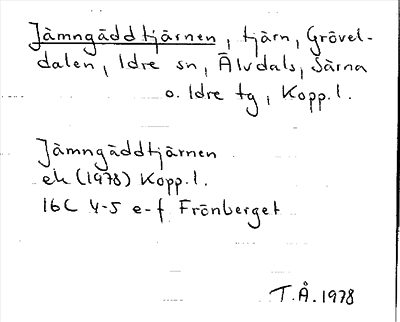 Jämngäddtjärnen, tjärn, Grövel-
dalen, Idre sn, Älvdals, Särna
o. Idre tg, Kopp. l.
Jämngäddtjärnen
ek (1978) Kopp. l.
16C 4-5 e-f Frönberget
T.Å. 1978